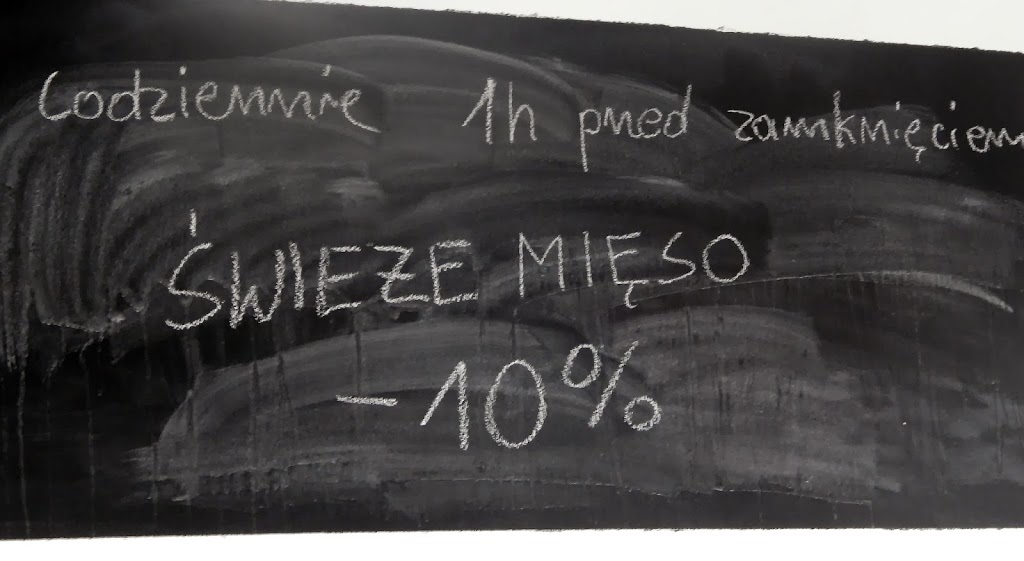 Codziennie 1h przed zamknięciem
ŚWIEŻE MIĘSO
-10%